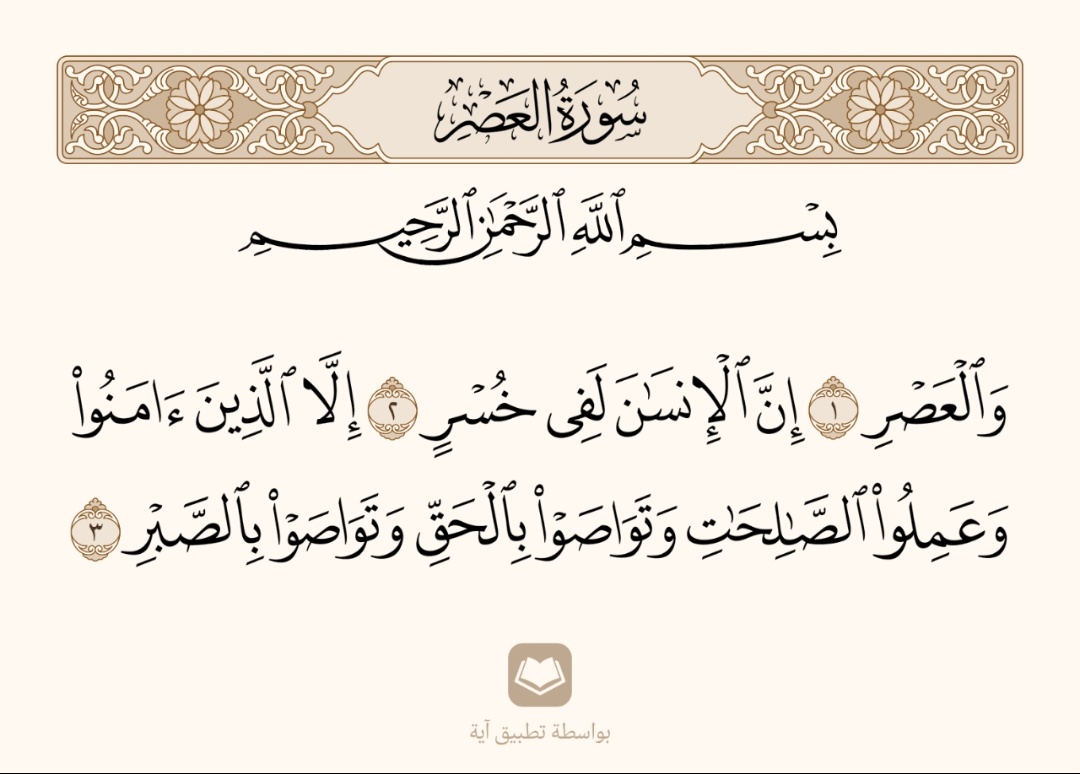 سُورَةُ العَصْرِ
بِسْمِ ٱللَّهِ ٱلرَّحْمَٰنِ ٱلرَّحِيمِ
وَٱلْعَصْرِ ١ إِنَّ ٱلْإِنسَٰنَ لَفِى خُسْرٍ ٢ إِلَّا ٱلَّذِينَ ءَامَنُوا۟
وَعَمِلُوا۟ ٱلصَّٰلِحَٰتِ وَتَوَاصَوْا۟ بِٱلْحَقِّ وَتَوَاصَوْا۟ بِٱلصَّبْرِ ٣
بواسطة تطبيق آية